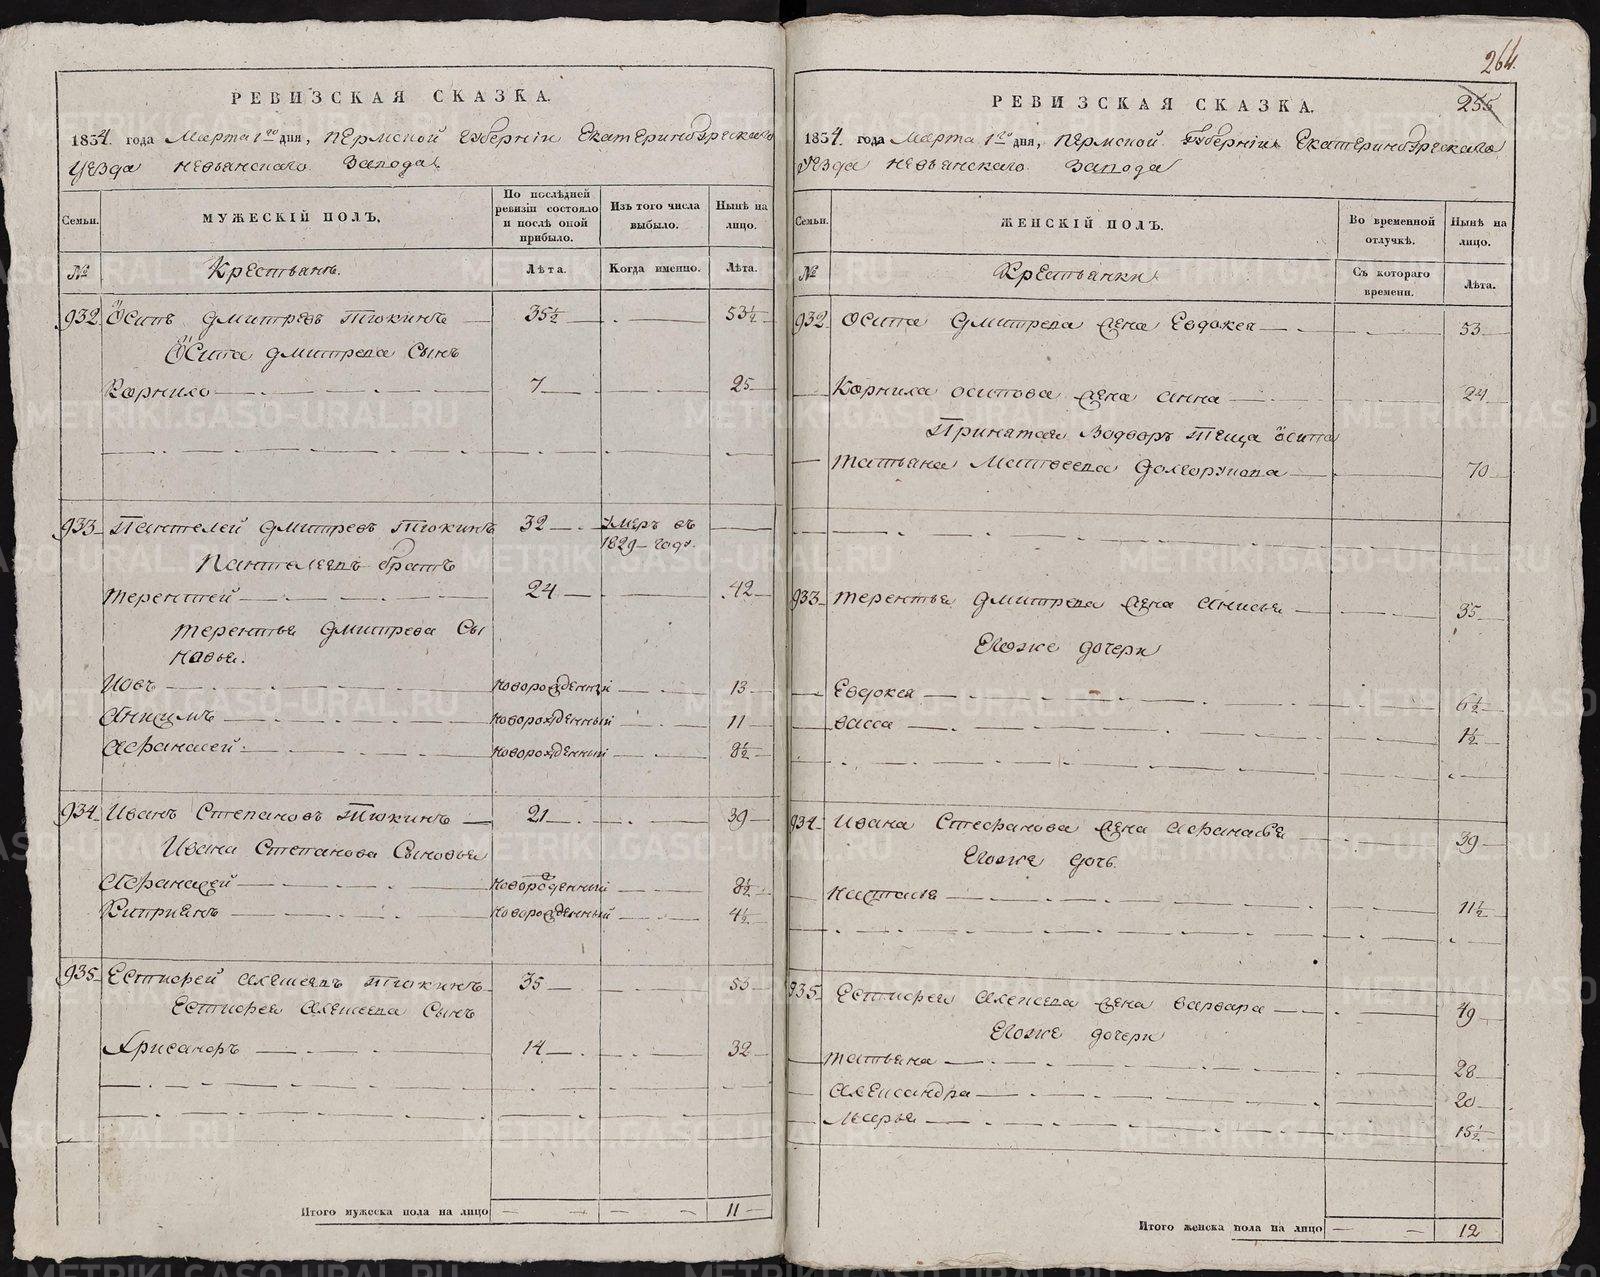 РЕВИЗСКАЯ СКАЗКА.
1834 года Марта 1го дня, Пермской Губернии Екатеринбургскаго
Уезда Невьянскаго Завода
Семьи.
МУЖЕСКІЙ ПОЛЪ,
По послѣдней ревизіи состояло и послѣ оной прибыло.
Изъ того числа выбыло.
Нынѣ на лицо.
№
Крестьянъ.
Лѣта.
Когда именно.
Лѣта.
932 Осипъ Дмитревъ Тюкинъ 35½ 53½
Осипа Дмитрева Сынъ
Корнило 7 25
933 Пантелей Дмитревъ Тюкинъ 32 Умеръ въ 1829 году.
Пантелеевъ братъ
Терентей 24 42
Терентья Дмитрева Сы
новья.
Иовъ новорожденный 13
новорожденный 11
Афанасей новорожденный 8½
934 Иванъ Степановъ Тюкинъ 21 39
Ивана Степанова Сыновья
Афанасей новорожденный 8½
Киприянъ новорожденный 4½
935 Естифей Алексеевъ Тюкинъ 35 53
Естифея Алексеева Сынъ
Хрисанфъ 14 32
Итого мужеска пола на лицо 11
264.
255
РЕВИЗСКАЯ СКАЗКА.
1834 года Марта 1го дня, Пермской Губернии Екатеринбургскаго
Уезда Невьянскаго Завода
Семьи.
ЖЕНСКІЙ ПОЛЪ.
Во временной отлучкѣ.
Нынѣ на лицо.
№
Крестьянки
Съ котораго времени.
Лѣта.
932 Осипа Дмитрева жена Евдокея 53
Корнила Осипова жена Анна 24
Принятая Водворъ Теща Осипа
Татьяна Матвеева Долгорукова 70
933 Терентья Дмитрева жена Анисья 35
Егоже дочери
Евдокея 6½
Васса 1½
934 Ивана Стефанова жена Афанасья 39
Егоже дочь.
Насталья 11½
935 Естифея Алексеева жена Варвара 49
Егоже дочери
Татьяна 28
Александра 20
Марья 15½
Итого женска пола на лицо 12
METRIKI.GASO-URAL.RU